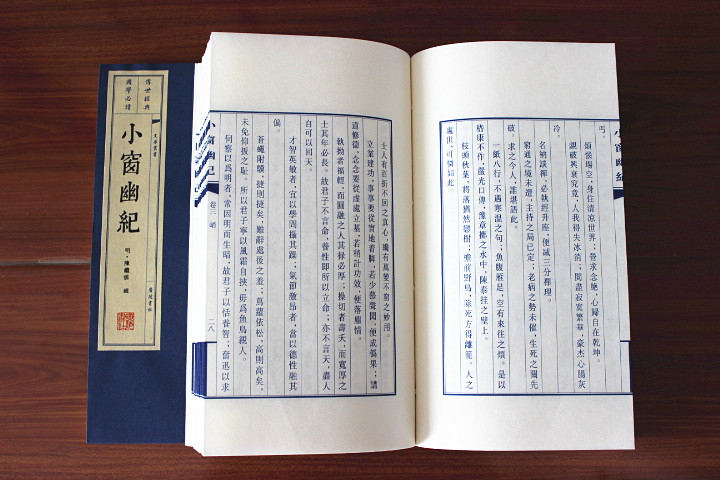 傳世經典
國學必讀
文華叢書
小窗幽紀
明·陳繼儒 撰
廣陵書社
小窗幽紀
丐。
煩惱場空，身住清涼世界；營求念絕，心歸自在乾坤。
覷破興衰究竟，人我得失冰消；閱盡寂寞繁華，豪杰心腸灰
冷。
名衲談禪，必執經升座，便減三分禪理。
窮通之境未遭，主持之局已定；老病之勢未催，生死之關先
破。求之今人，誰堪語此。
一紙八行，不遇寒溫之句；魚腹雁足，空有來往之煩。是以
嵇康不作，嚴光口傳，豫章擲之水中，陳泰挂之壁上。
枝頭秋葉，將落猶然戀樹；檐前野鳥，除死方得離籠。人之
處世，可憐如此。
士人有百折不回之真心，纔有萬變不窮之妙用。
立業建功，事事要從實地着脚，若少慕聲聞，便成僞果；講
道修德，念念要從虛處立基，若稍計功效，便落塵情。
執拗者福輕，而圓融之人其祿必厚；操切者壽夭，而寬厚之
士其年必長。故君子不言命，養性即所以立命；亦不言天，盡人
自可以回天。
才智英敏者，宜以學問攝其躁；氣節激昂者，當以德性融其
偏。
蒼蠅附驥，捷則捷矣，難辭處後之羞；蔦蘿依松，高則高矣，
未免仰扳之恥。所以君子寧以風霜自挾，毋爲魚鳥親人。
伺察以爲明者，常因明而生暗，故君子以恬養智；奮迅以求
小窗幽紀 卷三 峭 二八